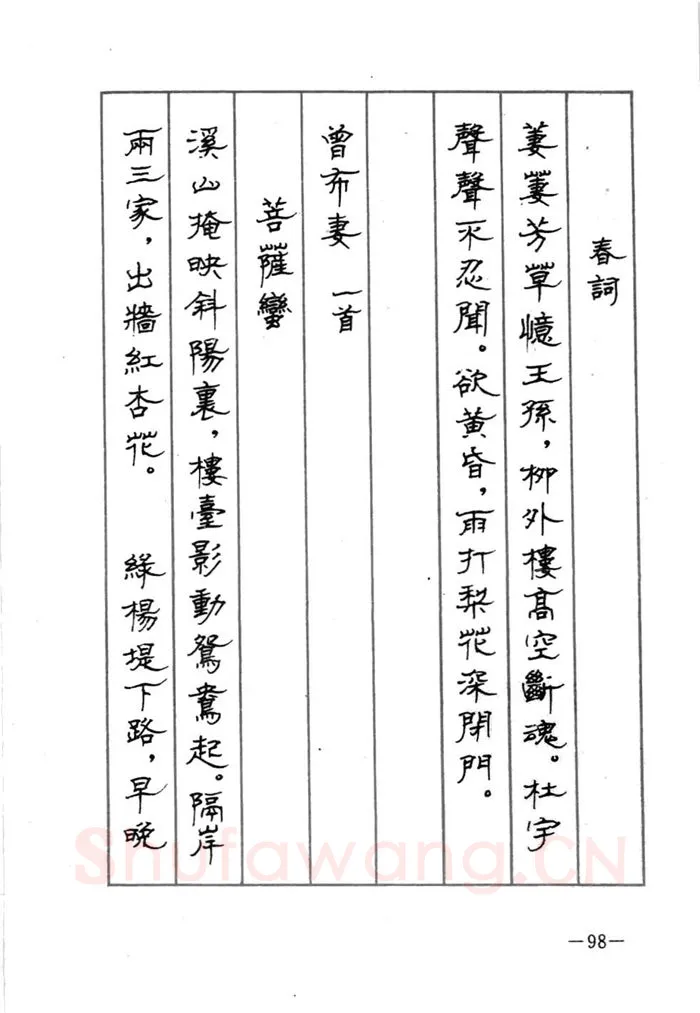 春詞
萋萋芳草憶王孫，柳外樓高空斷魂。杜宇
聲聲不忍聞。欲黃昏，雨打梨花深閉門。
曾布妻 一首
菩薩蠻
溪山掩映斜陽裏，樓臺影動鴛鴦起。隔岸
兩三家，出牆紅杏花。 綠楊堤下路，早晚
Shufawang.CN
—98—